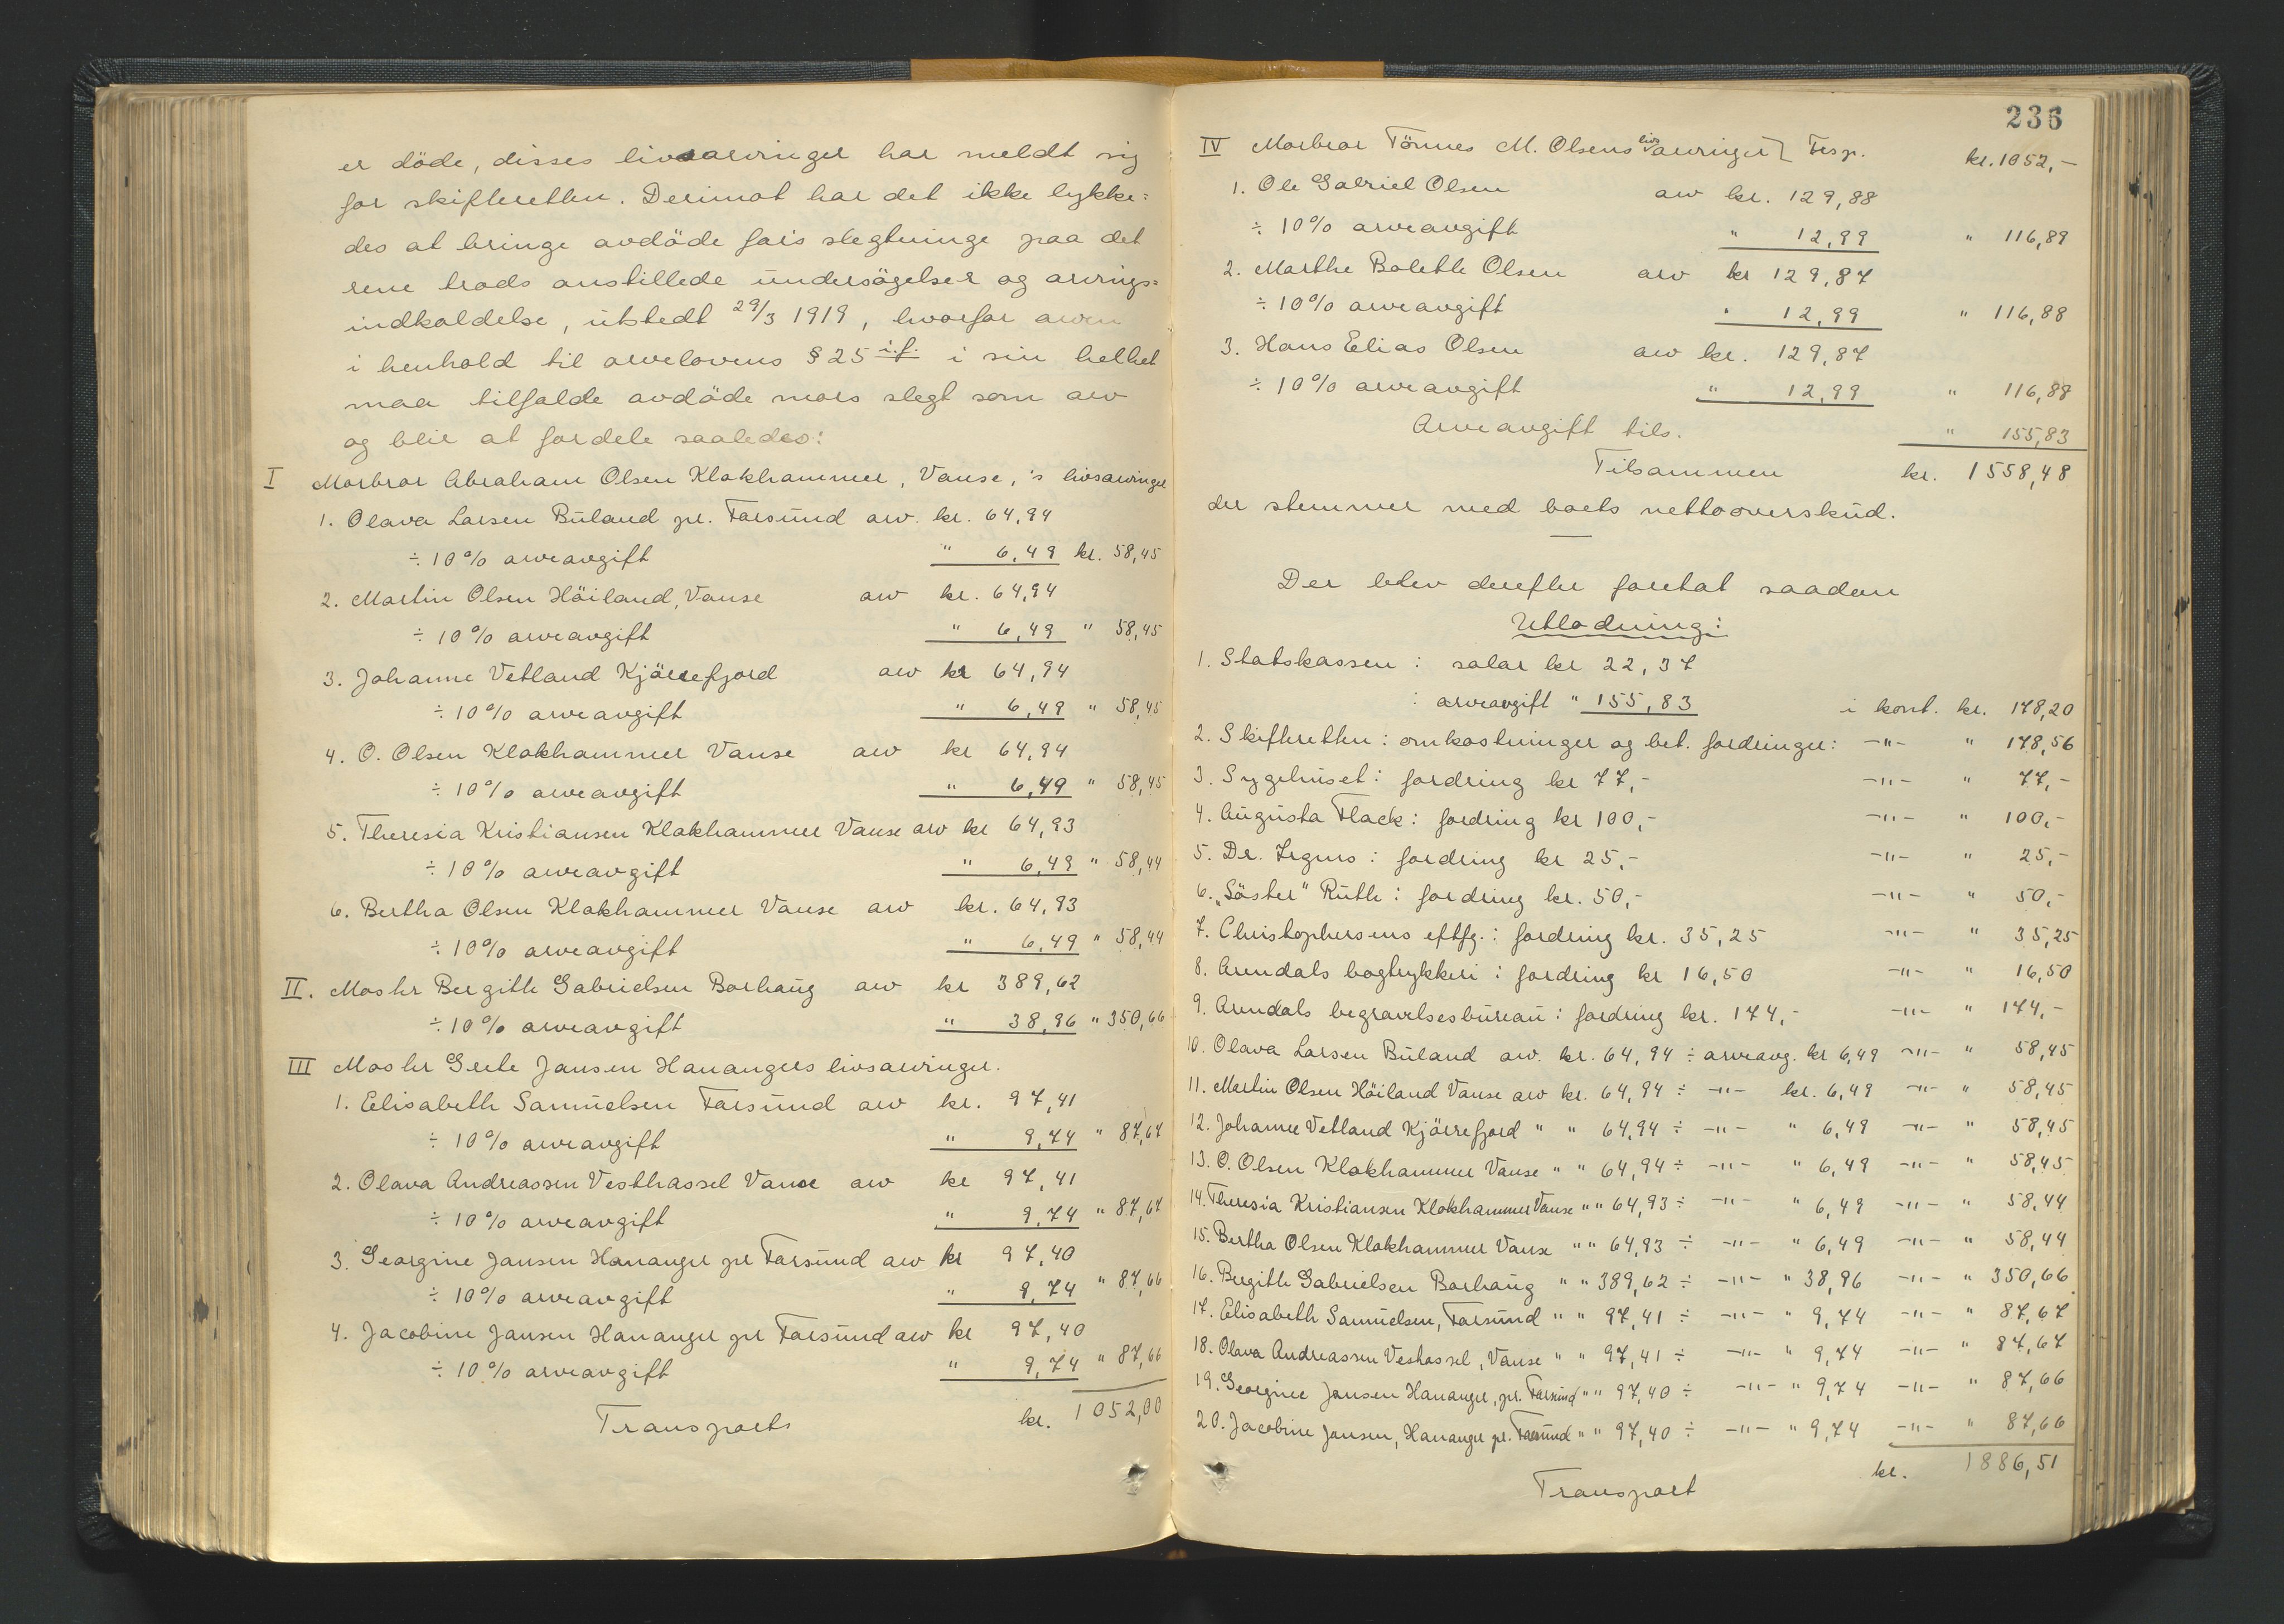 er döde, disses livsarvinger har meldt sig
for skifteretten. Derimot har det ikke lykke=
des at bringe avdöde fars slegtninge paa det
rene trods anstillede undersögelser og arvings=
indkaldelse, utstedt 29/3 1919, hvorfor arven
i henhold til arvelovens § 25 i.f. i sin helhet
maa tilfalde avdöde mors slegt som arv
og blir at fordele saaledes:
I Morbror Abraham Olsen Klokhammer, Vanse,'s livsarvinger
1. Olava Larsen Buland pr. Farsund arv. kr. 64,94
÷ 10% arveavgift " 6,49 kr. 58,45
2. Martin Olsen Höiland, Vanse arv kr. 64,94
÷ 10% arveavgift " 6,49 " 58,45
3. Johanne Vetland Kjörrefjord arv kr 64,94
÷ 10% arveavgift " 6,49 " 58,45
4. O. Olsen Klokhammer Vanse arv kr 64,94
÷ 10% arveavgift " 6,49 " 58,45
5. Theresia Kristiansen Klokhammer Vanse arv kr 64,93
÷ 10% arveavgift " 6,49 " 58,44
6. Bertha Olsen Klokhammer Vanse arv kr. 64,93
÷ 10% arveavgift " 6,49 " 58,44
II. Moster Bergitte Gabrielsen Borhaug arv kr 389,62
÷ 10% arveavgift " 38,96 " 350,66
III Moster Gerte Jansen Hanangers livsarvinger.
1. Elisabeth Samuelsen Farsund arv kr. 97,41
÷ 10% arveavgift " 9,74 " 87,67
2. Olava Andreassen Vesthassel Vanse arv kr 97,41
÷ 10% arveavgift " 9,74 " 87,67
3. Georgine Jansen Hananger pr Farsund arv kr 97,40
÷ 10% arveavgift " 9,74 " 87,66
4. Jacobine Jansen Hananger pr Farsund arv kr 97,40
÷ 10% arveavgift " 9,74 " 87,66
Transports kr. 1052,00
236
IV Morbror Tönnes M. Olsens livsarvinger Trsp. kr. 1052,-
1. Ole Gabriel Olsen arv kr. 129,88
÷ 10% arveavgift " 12,99 " 116,89
2. Marthe Bolette Olsen arv kr 129,87
÷ 10% arveavgift " 12,99 " 116,88
3. Hans Elias Olsen arv kr. 129,87
÷ 10% arveavgift " 12,99 " 116,88
Arveavgift tils. " 155,83
Tilsammen kr. 1558,48
der stemmer med boets nettooverskud.
Der blev derefter foretat saadan
Utlodning:
1. Statskassen: salar kr 22,37
: arveavgift " 155,83 i kont. kr. 178,20
2. Skifteretten: omkostninger og bet. fordringer: -"- " 178,56
3. Sygehuset: fordring kr 77,- -"- " 77,-
4. Augusta Flack: fordring kr 100,- -"- " 100,-
5. Dr. : fordring kr 25,- -"- " 25,-
6. "Söster" Ruth: fordring kr. 50,- -"- " 50,-
7. Christophersens eftfg.: fordring kr. 35,25 -"- " 35,25
8. Arendals bogtrykkeri: fordring kr 16,50 -"- " 16,50
9. Arendals begravelsesbureau: fordring kr. 174,- -"- " 174,-
10. Olava Larsen Buland arv. kr. 64,94 ÷ arveavg. kr 6,49 -"- " 58,45
11. Martin Olsen Höiland Vanse arv kr. 64,94 ÷ -"- kr. 6,49 -"- " 58,45
12. Johanne Vetland Kjörrefjord " " 64,94 ÷ -"- " 6,49 -"- " 58,45
13. O. Olsen Klokhammer Vanse " " 64,94 ÷ -"- " 6,49 -"- " 58,45
14. Theresia Kristiansen Klokhammer Vanse " " 64,93 ÷ -"- " 6,49 -"- " 58,44
15. Bertha Olsen Klokhammer Vanse " " 64,93 ÷ -"- " 6,49 -"- " 58,44
16. Bergitte Gabrielsen Borhaug " " 389,62 ÷ -"- " 38,96 -"- " 350,66
17. Elisabeth Samuelsen, Farsund " " 97,41 ÷ -"- " 9,74 -"- " 87,67
18. Olava Andreassen Vestassel, Vanse " " 97,41 ÷ -"- " 9,74 -"- " 87,67
19. Georgine Jansen Hananger, pr. Farsund " " 97,40 ÷ -"- " 9,74 -"- " 87,66
20. Jacobine Jansen, Hananger pr. Farsund " " 97,40 ÷ -"- " 9,74 -"- " 87,66
Transport kr. 1886,51